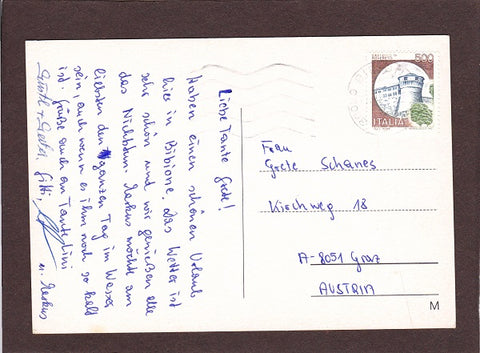 Liebe Tante Grete!
Haben einen schönen Urlaub
hier in Bibione. Das Wetter ist
sehr schön und wir genießen alle
das Nichtstun. Markus möchte am
liebsten den ganzen Tag im Wasser
sein, auch wenn es ihm noch so kalt
ist. Grüße auch an Tante Lini
Gitti,
u. Markus
500
ITALIA
Frau
Grete Schanes
Kirchweg 18
A-8051 Graz
AUSTRIA
M